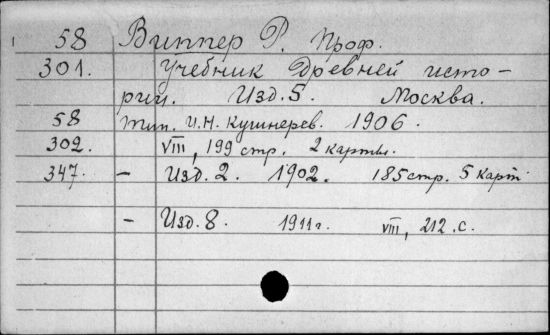 58 Виппер Р. Проф.
301. Учебник Древней исто-
рии. Изд. 5. Москва.
58 тип. И.Н. Кушнерев. 1906.
302. VIII, 199 стр. 2 карты.
347. – Изд. 2. 1902. 185 стр. 5 карт
– Изд. 8. 1911 г. VIII, 212.с.